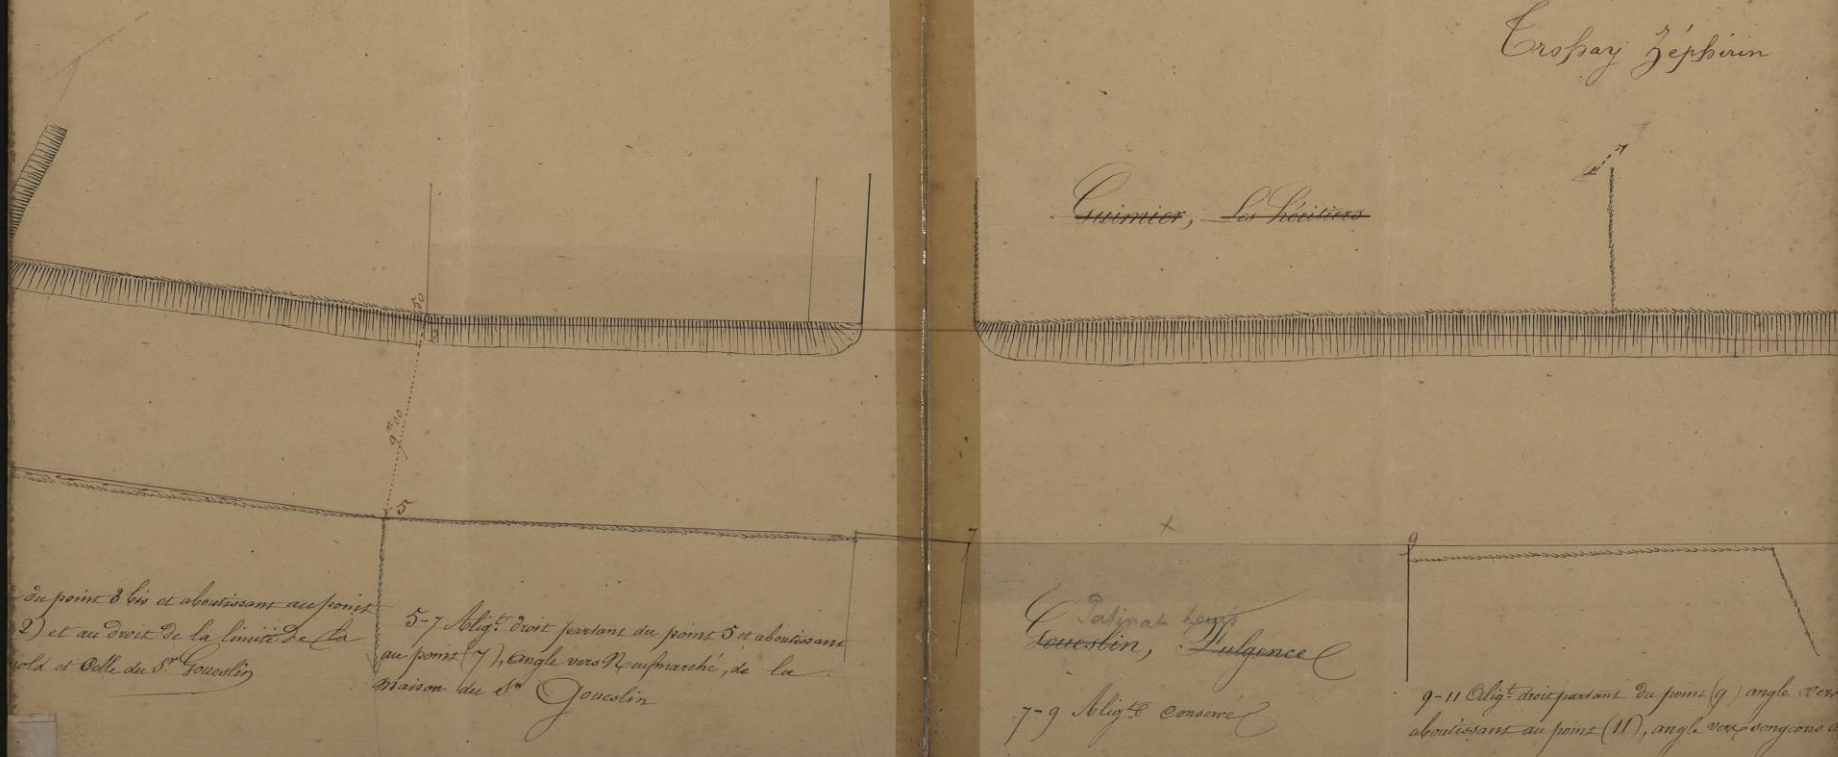 Trophay Zéphirin
Guimier, Les héritiers
0.50
2
9m00
5
7
9
du point 3 bis et aboutissant au point
2) et au droit de la limite de la
et Celle du Sr Goueslin
5-7 Alig.t droit partant du point 5 et aboutissant
au point (7), angle vers Neufmarché, de la
maison du Sr Goueslin
Patinat Louis
Goueslin, Fulgence
7-9 Alig.t Conservé
9-11 Alig.t droit partant du point (9) angle vers
aboutissant au point (11), angle vers Songeons